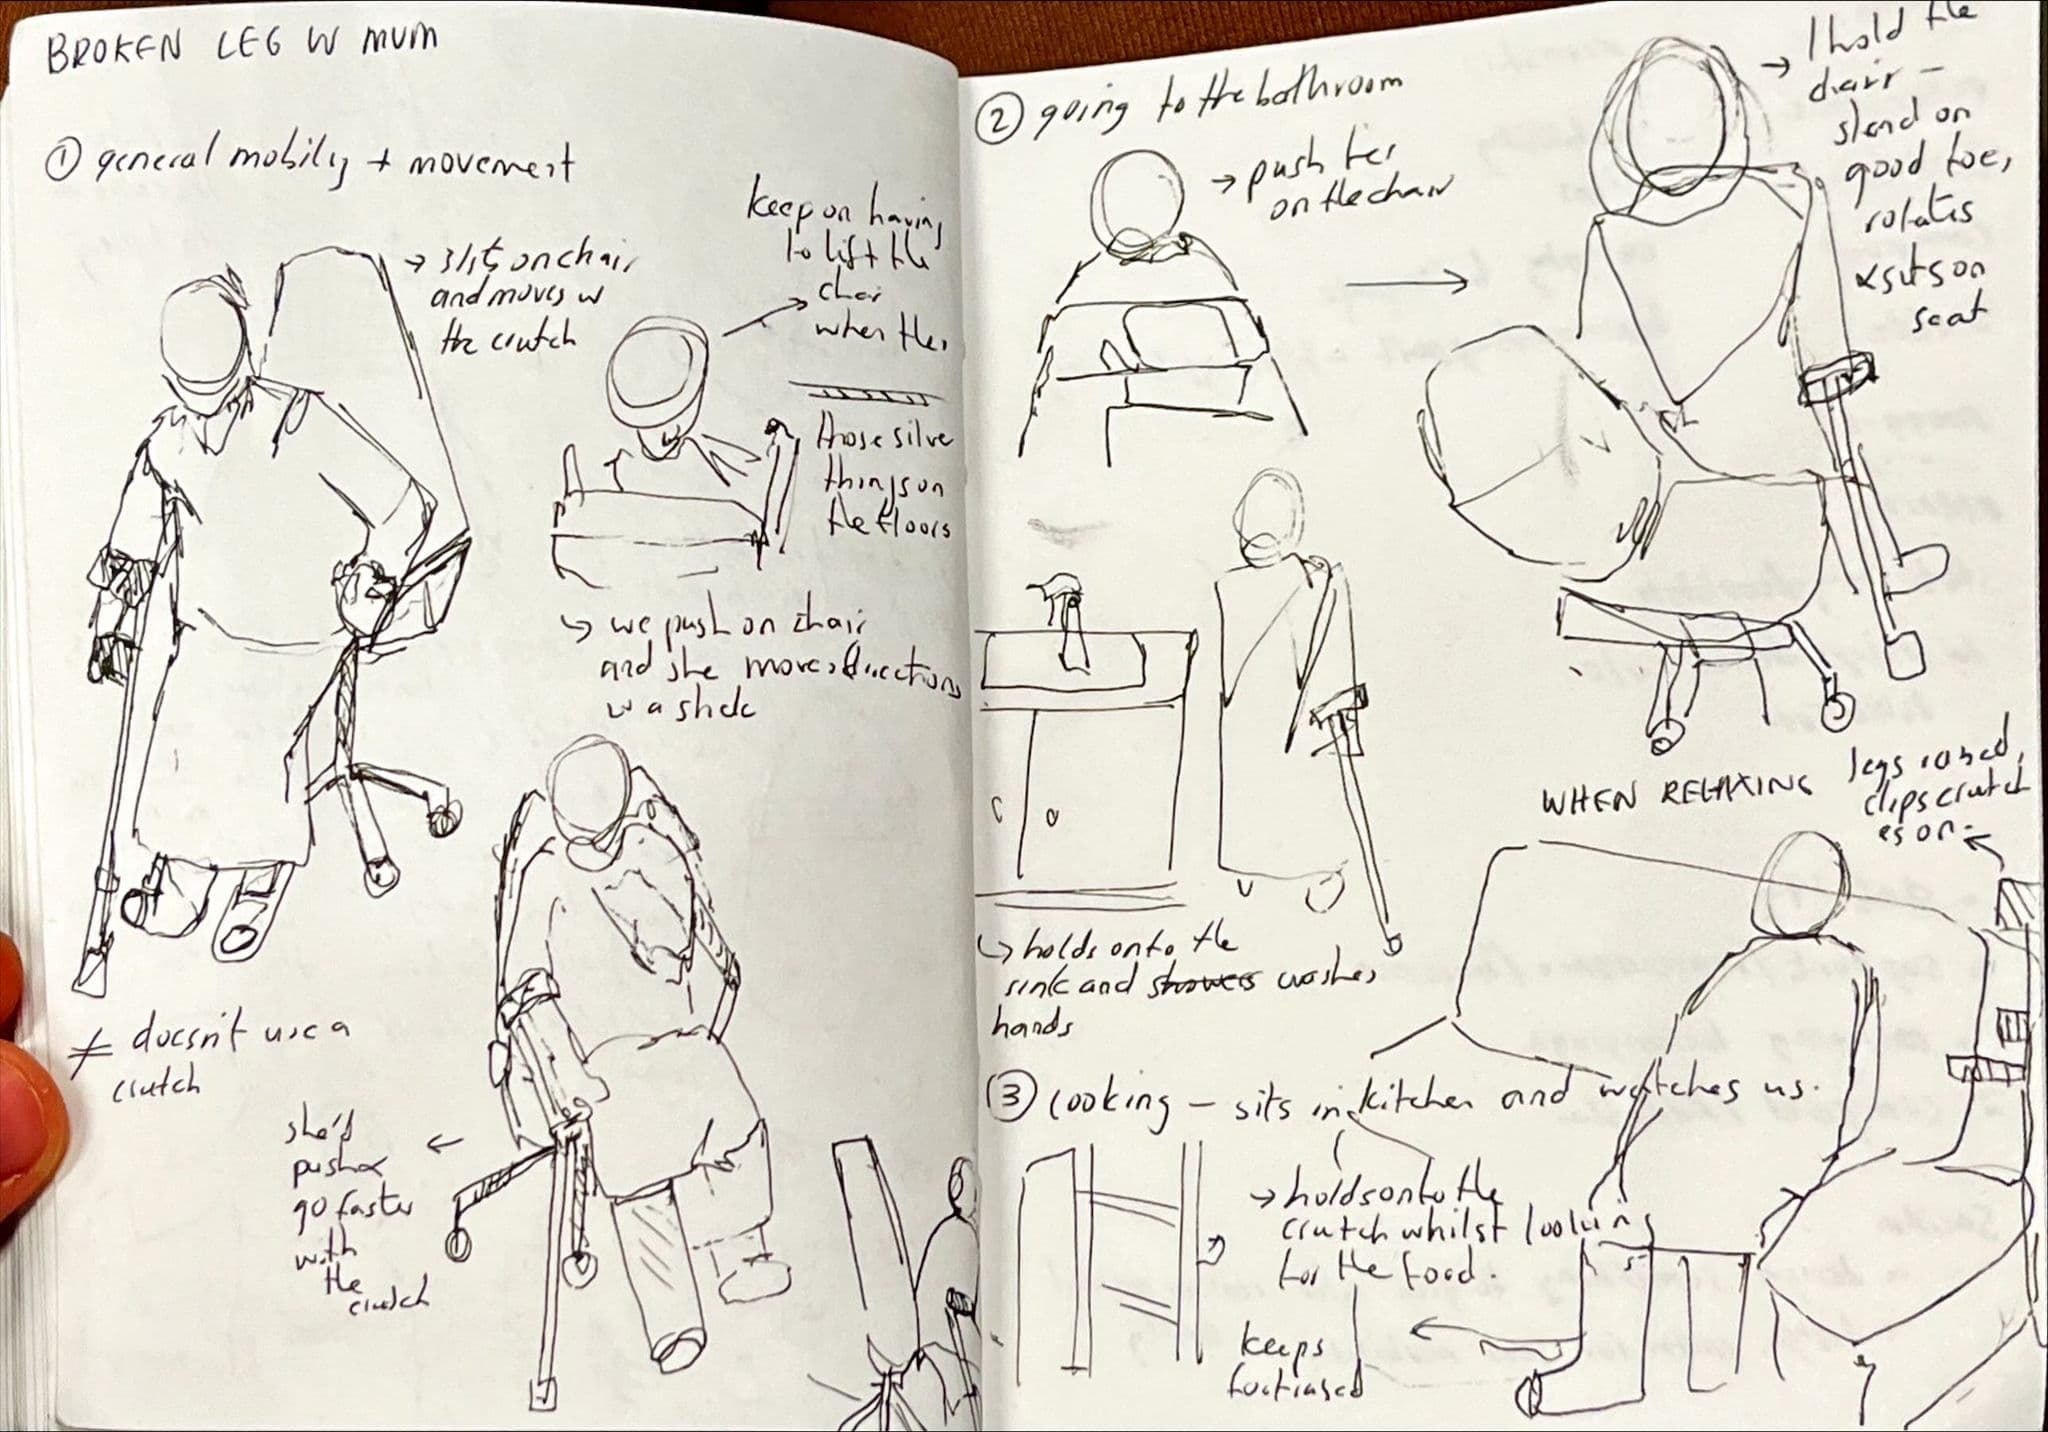 BROKEN LEG W MUM
① general mobility + movement
→ sits on chair
and moves w
the crutch
keep on having
to lift the
chair
when the
those silve
things on
the floors
↳ we push on chair
and she moves directions
w a stick
≠ doesn't use a
crutch
she'd
push &
go faster
with
the
crutch
② going to the bathroom
→ push her
on the chair
→ I hold the
chair –
stand on
good toe,
rotates
& sits on
seat
↳ holds onto the
sink and showers washes
hands
WHEN RELAXING
legs raised,
clips crutch
on
③ cooking – sits in kitchen and watches us.
→ holds onto the
crutch whilst looking
for the food.
keeps
foot raised